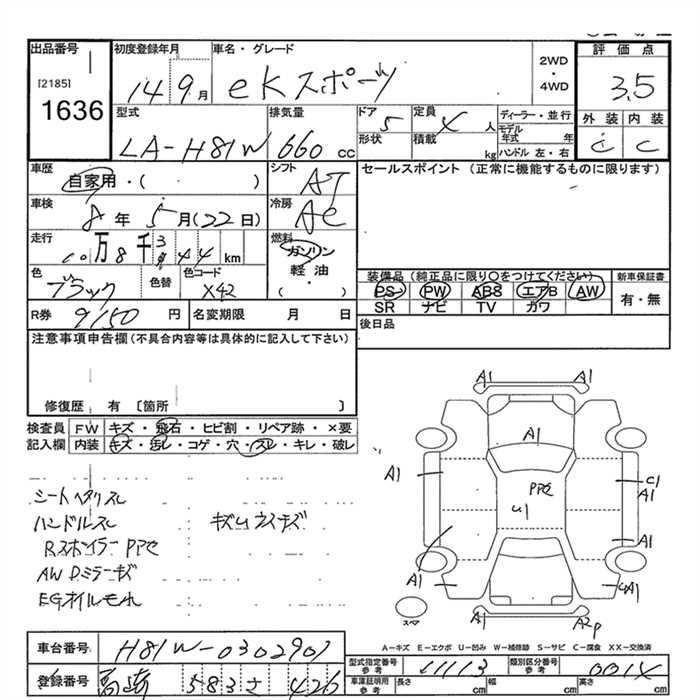 出品番号 初度登録年月 車名・グレード 評価点
[2185] 1636
14 9月 eKスポーツ 2WD・4WD 3.5
型式 排気量 ドア 定員 ディーラー・並行 外装 内装
LA-H81W 660 cc 5 人 モデル年式 年 C C
形状 積載 kg ハンドル 左・右
車歴 シフト セールスポイント (正常に機能するものに限ります)
自家用・( ) AT
車検 冷房
8年 5月(22日) AC
走行 燃料
10万8千344km ガソリン
軽油
( ・ )
色 色替 色コード
ブラック X42
装備品(純正品に限り○をつけてください) 新車保証書
PS PW ABS エアB AW 有・無
SR ナビ TV カワ
R券 9150円 名変期限 月 日 後日品
注意事項申告欄(不具合内容等は具体的に記入して下さい)
修復歴 有 〔箇所 〕
検査員 FW キズ・飛石・ヒビ割・リペア跡・×要
記入欄 内装 キズ・汚レ・コゲ・穴・スレ・キレ・破レ
シートヘタリスレ
ハンドルスレ キズUウスキズ
RスポイラーPPセ
AWDミラーキズ
EGオイルモれ
A1 A1
A1
A1 PPセ C1
A1
U1
A1
A1 UA1
A1 A2P
スペア
A-キズ E-エクボ U-凹み W-補修跡 S-サビ C-腐食 XX-交換済
車台番号 H81W-0302907
型式指定番号 参考 11113 類別区分番号 参考
登録番号 583 426
車庫証明用 参考 長さ cm 幅 cm 高さ cm